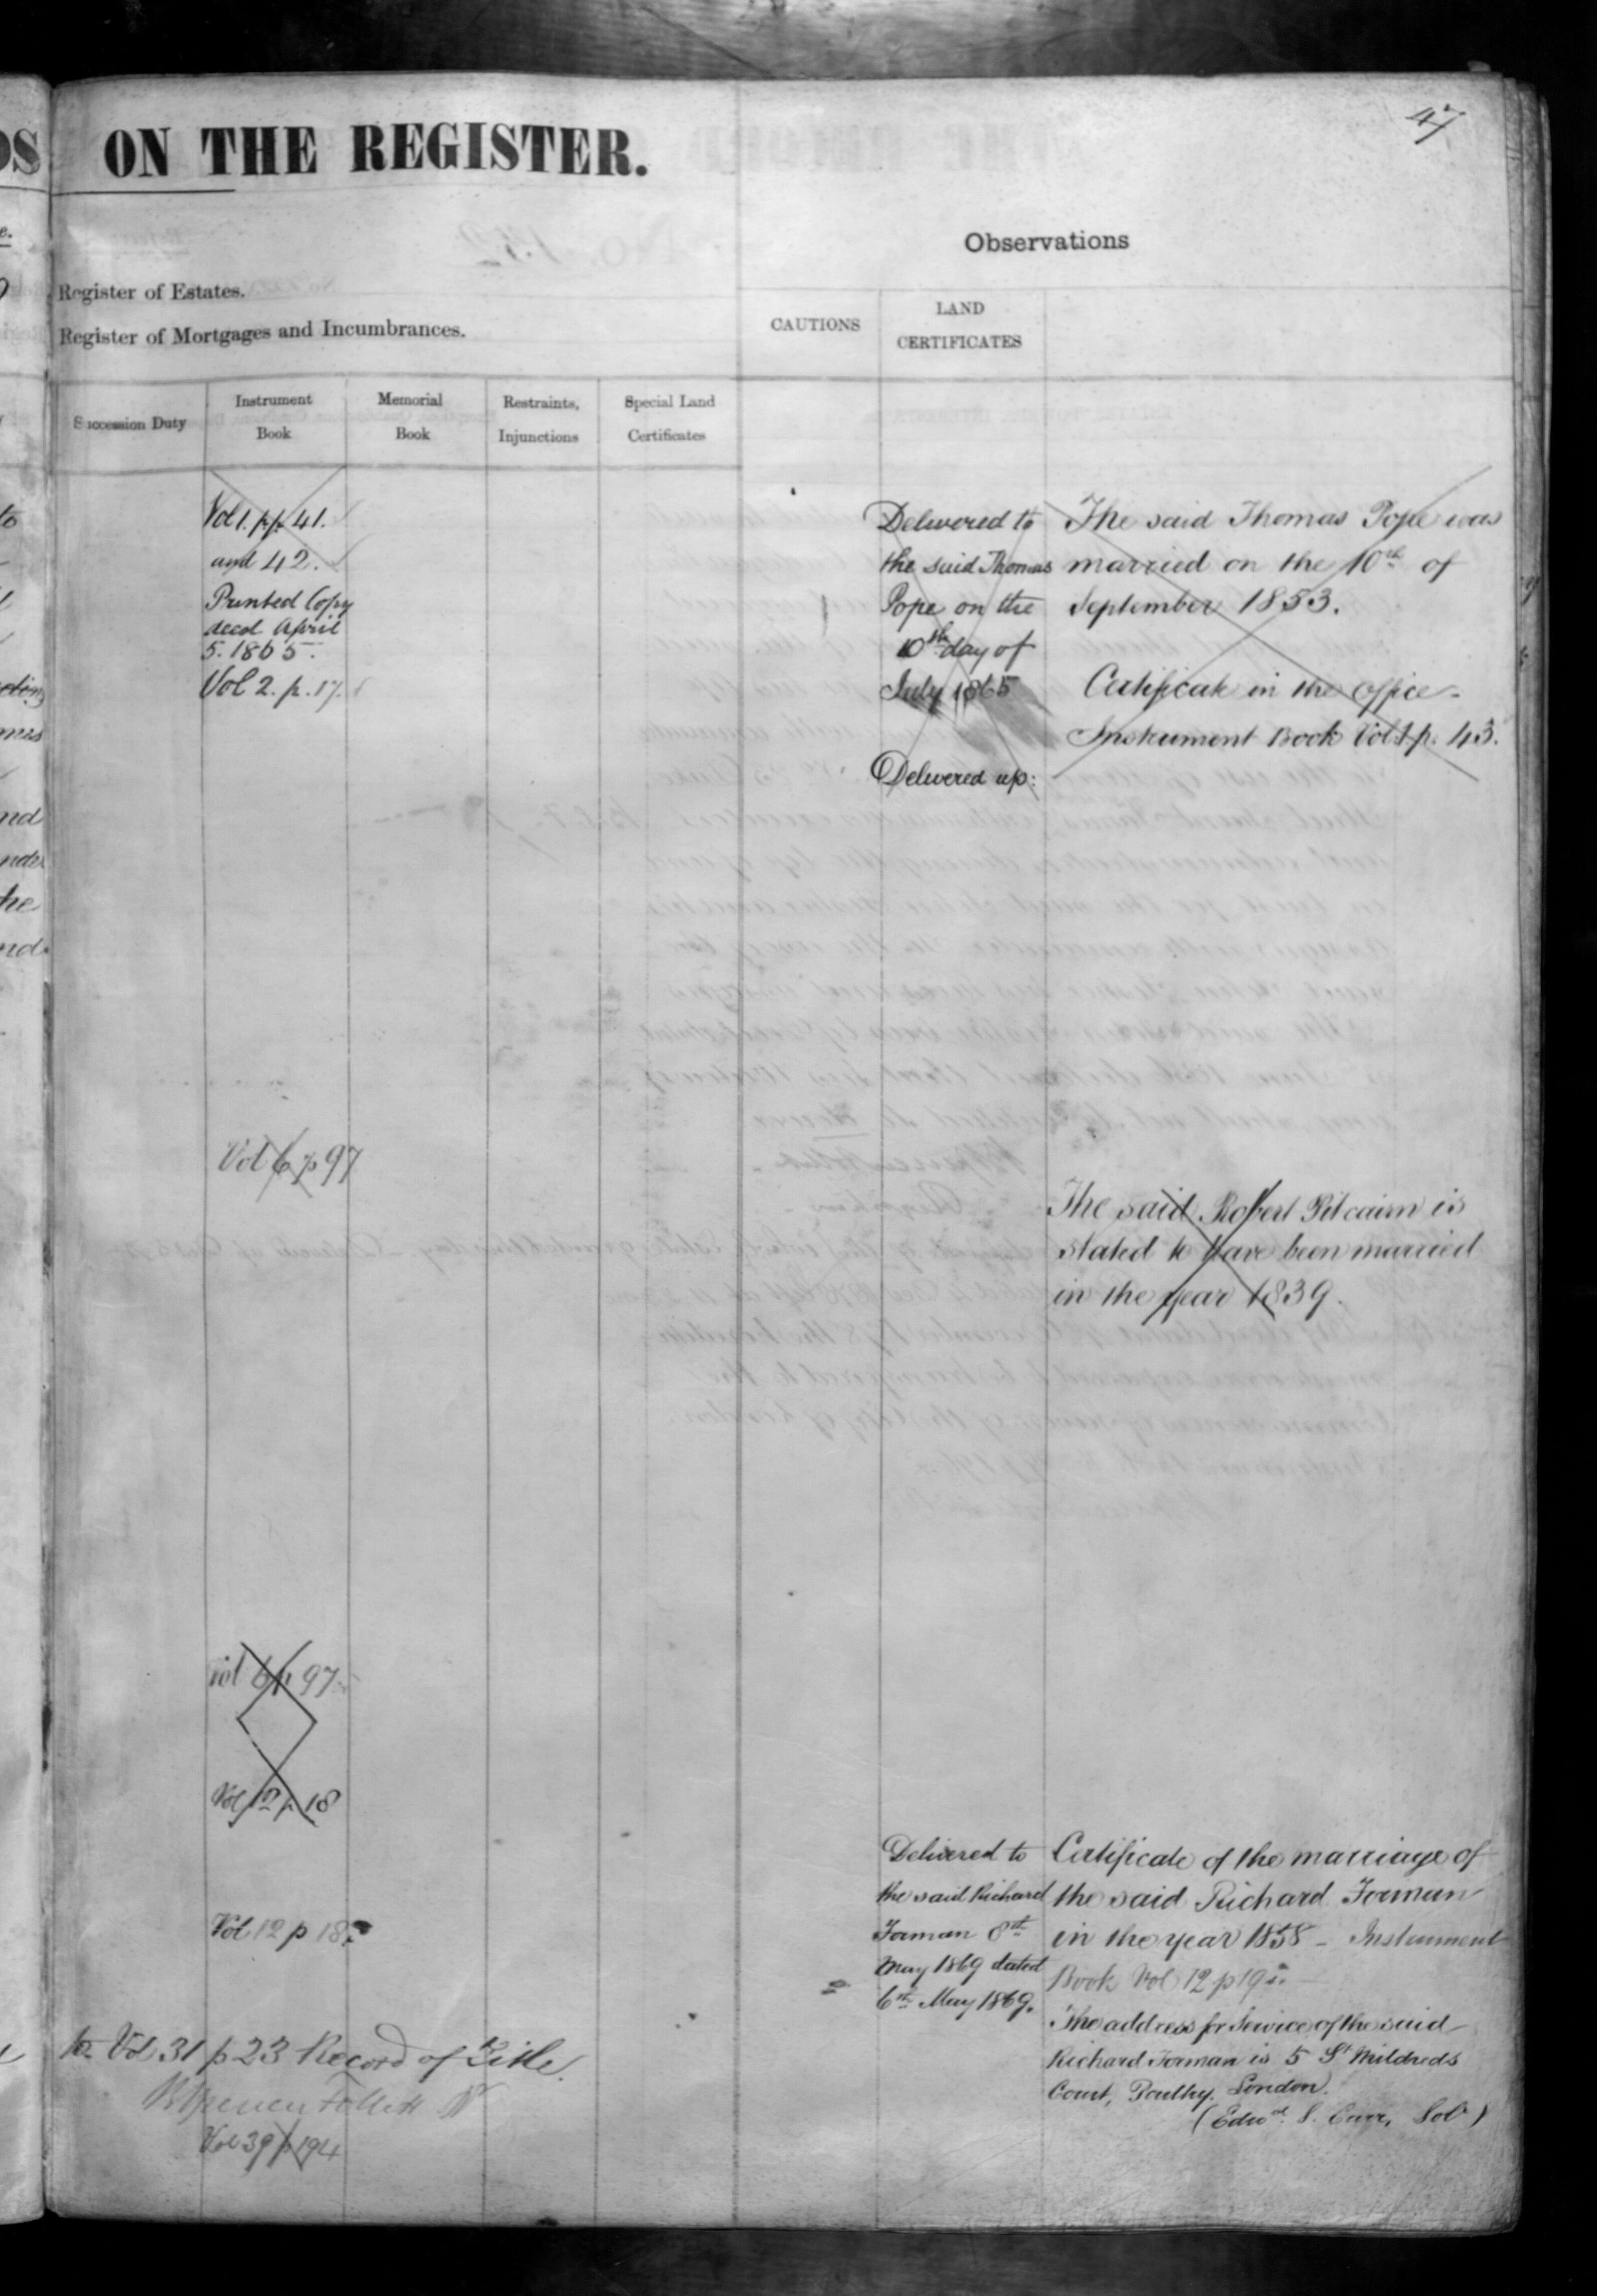 47
ON THE REGISTER.
Observations
Register of Estates.
Register of Mortgages and Incumbrances.
CAUTIONS
LAND
CERTIFICATES
Succession Duty
Instrument
Book
Memorial
Book
Restraints,
Injunctions
Special Land
Certificates
Vol 1. pp. 41.
and 42.
Printed Copy
decd April
5. 1865.
Vol 2. p. 17.
Delivered to
the said Thomas
Pope on the
10th day of
July 1865
Delivered up.
The said Thomas Pope was
married on the 10th of
September 1853.
Certificate in the Office
Instrument Book Vol 1 p. 43.
Vol 6 p 97
The said Robert Pitcairn is
stated to have been married
in the year 1839.
Vol 6 p 97
Vol 12 p 18
Vol 12 p 18
Delivered to
the said Richard
Forman 8th
May 1869 dated
6th May 1869.
Certificate of the marriage of
the said Richard Forman
in the year 1858 - Instrument
Book Vol 12 p 19
The address for Service of the said
Richard Forman is 5 St Mildreds
Court, Poultry. London.
(Edwd. S. Carr, Solr)
to Vol 31 p 23 Record of Title.
Follett
Vol 39 p 194